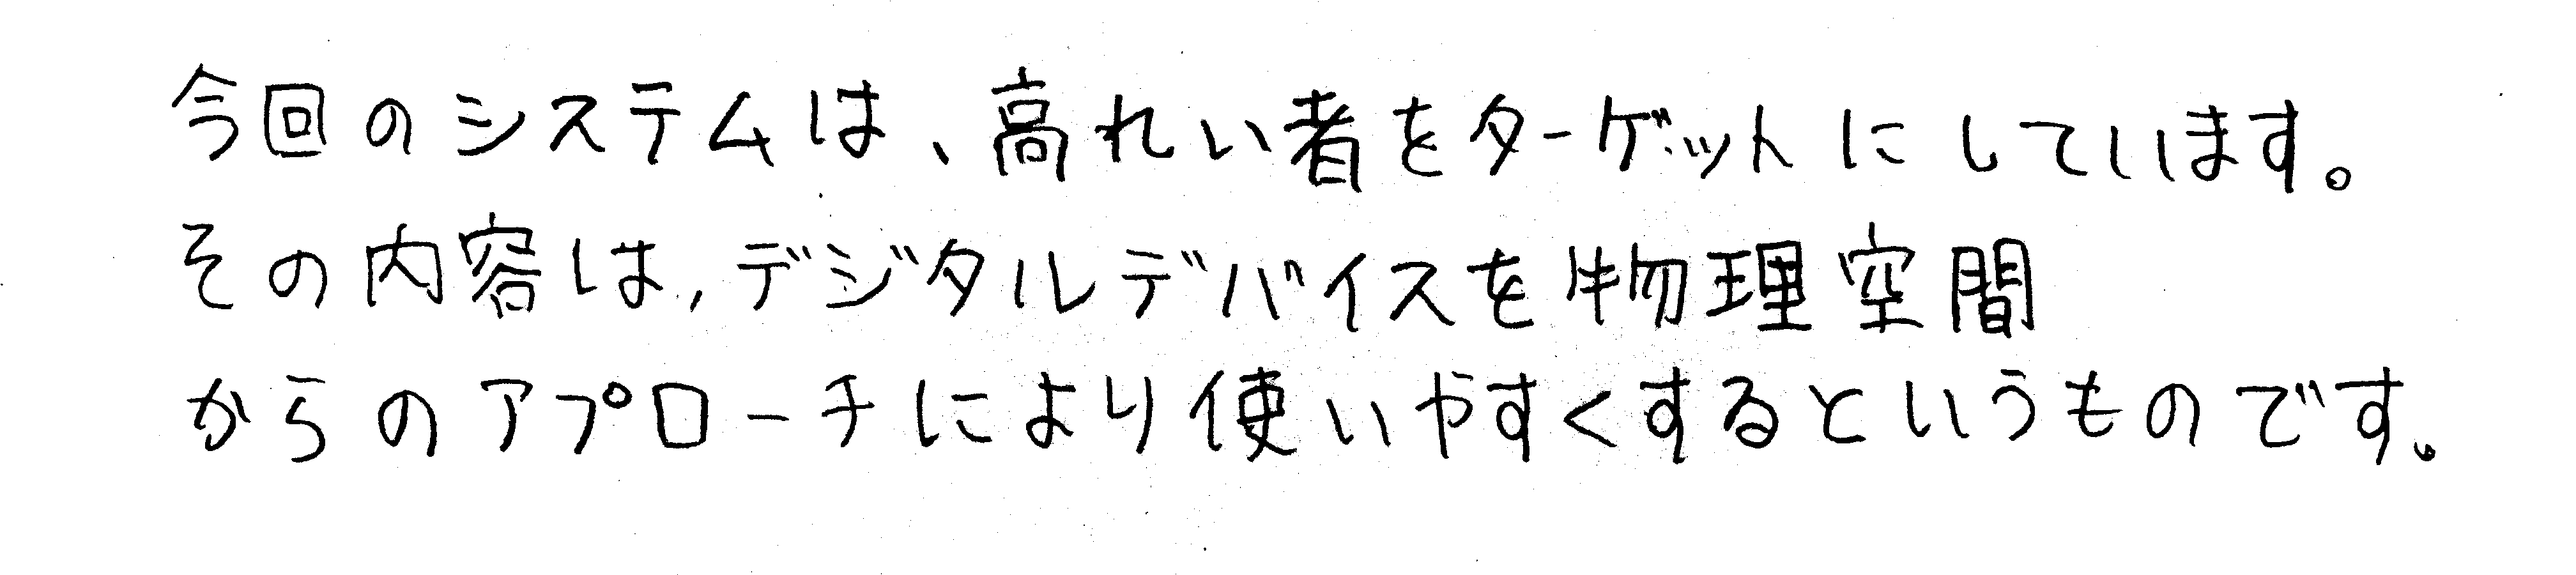 今回のシステムは、高れい者をターゲットにしています。
その内容は、デジタルデバイスを物理空間
からのアプローチにより使いやすくするというものです。